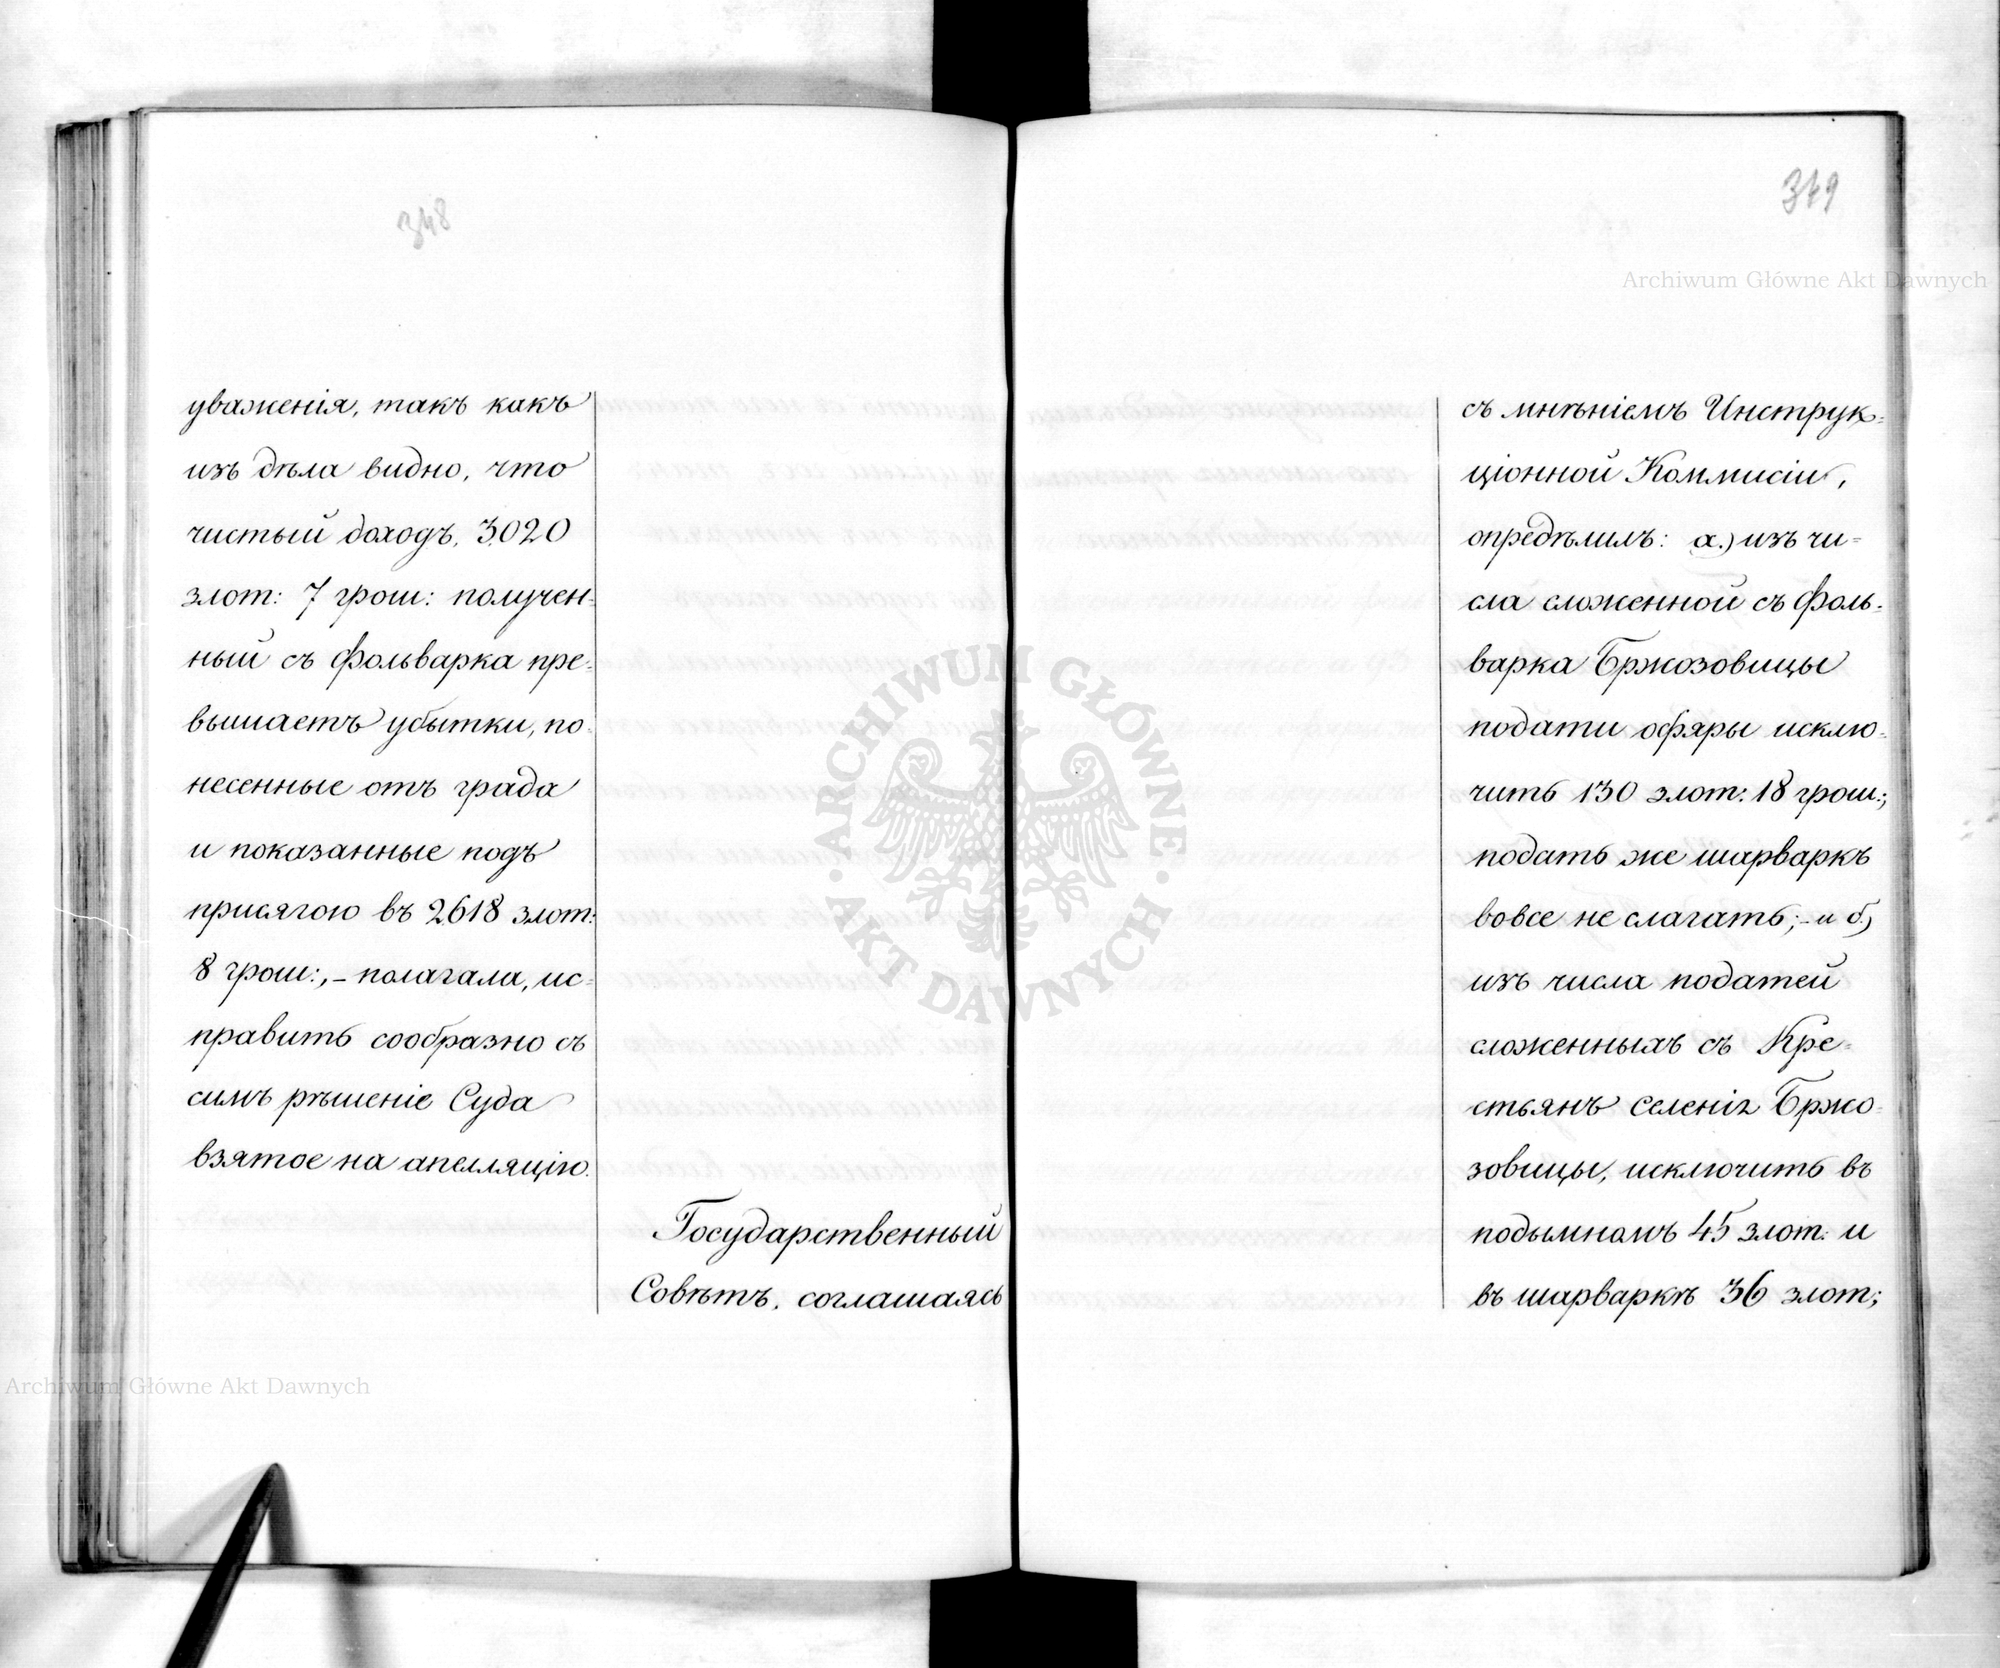 348
уваженія, такъ какъ
изъ дѣла видно, что
чистый доходъ, 3020
злот: 7 грош: получен-
ный съ фольварка пре-
вышаетъ убытки, по-
несенные отъ града
и показанные подъ
присягою въ 2618 злот:
8 грош:,– полагала, ис-
править сообразно съ
симъ рѣшеніе Суда
взятое на апелляцію.
Государственный
Совѣтъ, соглашаясь
349
Archiwum Główne Akt Dawnych
съ мнѣніемъ Инструк-
ціонной Коммисіи,
опредѣлилъ: а.) изъ чи-
сла сложенной съ фоль-
варка Бржозовицы
подати офяры исклю-
чить 130 злот: 18 грош:;
подать же шарваркъ
вовсе не слагать;– и б)
изъ числа податей
сложенныхъ съ Кре-
стьянъ селенія Бржо-
зовицы, исключить въ
подымномъ 45 злот: и
въ шарваркѣ 36 злот;
ARCHIWUM GŁÓWNE
AKT DAWNYCH
Archiwum Główne Akt Dawnych